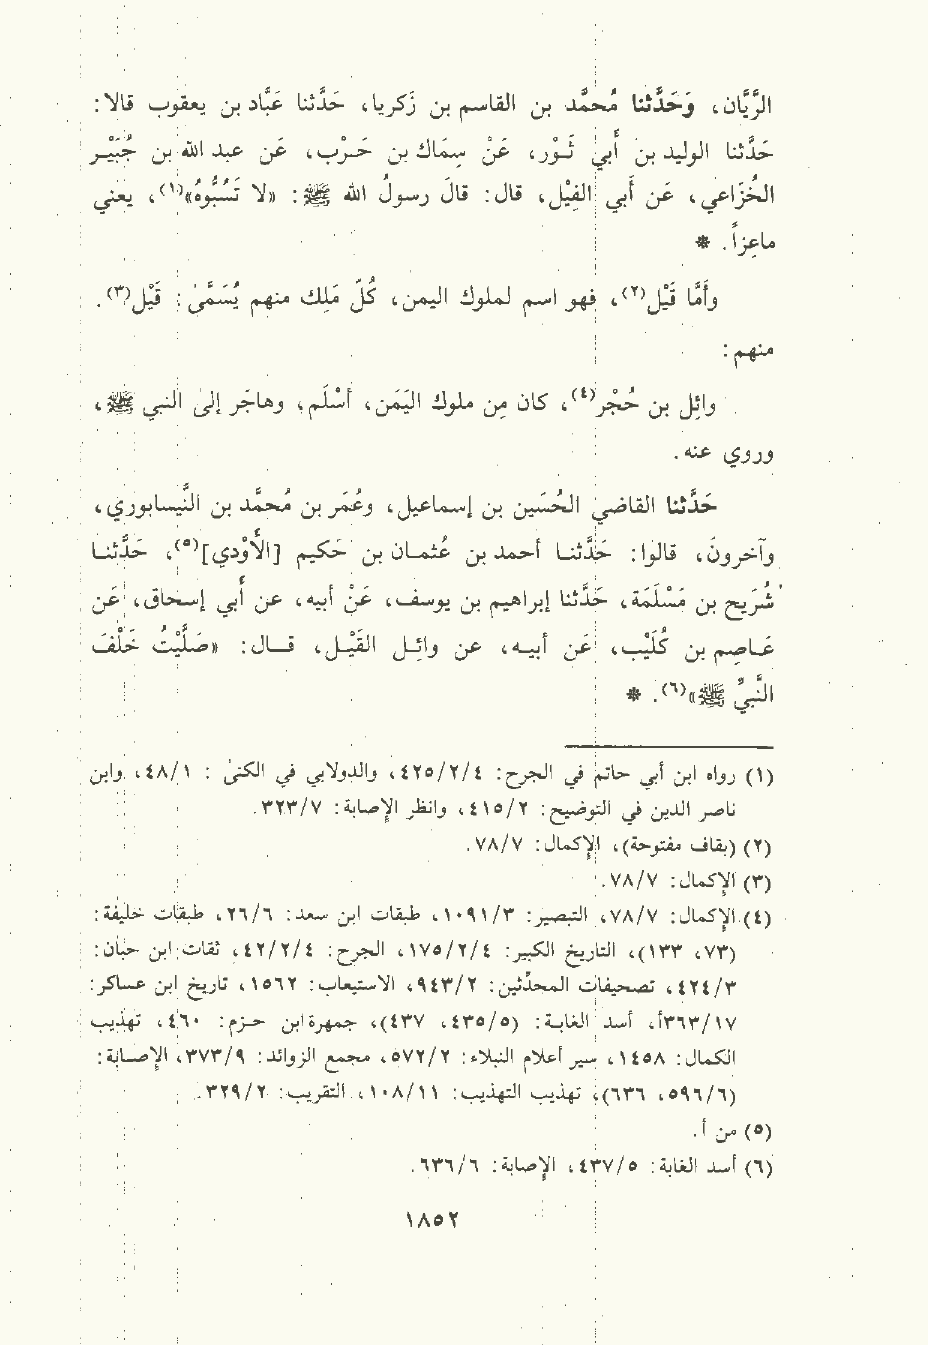 الرَّيَّان، وَحَدَّثنا مُحمَّد بن القاسم بن زَكريا، حَدَّثنا عَبَّاد بن يعقوب قالا:
حَدَّثنا الوليد بن أَبي ثَـوْر، عَنْ سِمَاك بن حَـرْب، عَن عبد الله بن جُبَيْـر
الخُزَاعي، عَن أَبي الفِيْل، قال: قالَ رسولُ الله ﷺ: «لا تَسُبُّوهُ»(١)، يعني
ماعِزاً. *
وأَمَّا قَيْل(٢)، فهو اسم لملوك اليمن، كُلّ مَلِك منهم يُسَمَّىٰ: قَيْل(٣).
منهم:
وائِل بن حُجْر(٤)، كان مِن ملوك اليَمَن، أَسْلَم، وهاجَر إلىٰ النبي ﷺ،
وروي عنه.
حَدَّثنا القاضي الحُسَين بن إسماعيل، وعُمَر بن مُحمَّد بن النَّيسابوري،
وآخرونَ، قالوا: حَدَّثنـا أحمد بن عُثمـان بن حَكيم [الأَوْدي](٥)، حَدَّثنـا
شُرَيح بن مَسْلَمَة، حَدَّثنا إبراهيم بن يوسف، عَنْ أبيه، عن أَبي إسحاق، عَن
عَـاصِم بن كُلَيْب، عَن أبيـه، عن وائِـل القَيْـل، قـــال: «صَلَّيْتُ خَلْفَ
النَّبيِّ ﷺ»(٦). *
(١) رواه ابن أبي حاتم في الجرح: ٤/٢/٤٢٥، والدولابي في الكنىٰ: ١/٤٨، وابن
ناصر الدين في التوضيح: ٢/٤١٥، وانظر الإصابة: ٧/٣٢٣.
(٢) (بقاف مفتوحة)، الإكمال: ٧/٧٨.
(٣) الإكمال: ٧/٧٨.
(٤) الإكمال: ٧/٧٨، التبصير: ٣/١٠٩١، طبقات ابن سعد: ٦/٢٦، طبقات خليفة:
(٧٣، ١٣٣)، التاريخ الكبير: ٤/٢/١٧٥، الجرح: ٤/٢/٤٢، ثقات ابن حبان:
٣/٤٢٤، تصحيفات المحدِّثين: ٢/٩٤٣، الاستيعاب: ١٥٦٢، تاريخ ابن عساكر:
١٧/٣٦٣أ، أسد الغـابـة: (٥/٤٣٥، ٤٣٧)، جمهرة ابن حـزم: ٤٦٠، تهذيب
الكمال: ١٤٥٨، سير أعلام النبلاء: ٢/٥٧٢، مجمع الزوائد: ٩/٣٧٣، الإصـابة:
(٦/٥٩٦، ٦٣٦)، تهذيب التهذيب: ١١/١٠٨، التقريب: ٢/٣٢٩.
(٥) من أ.
(٦) أسد الغابة: ٥/٤٣٧، الإصابة: ٦/٦٣٦.
١٨٥٢